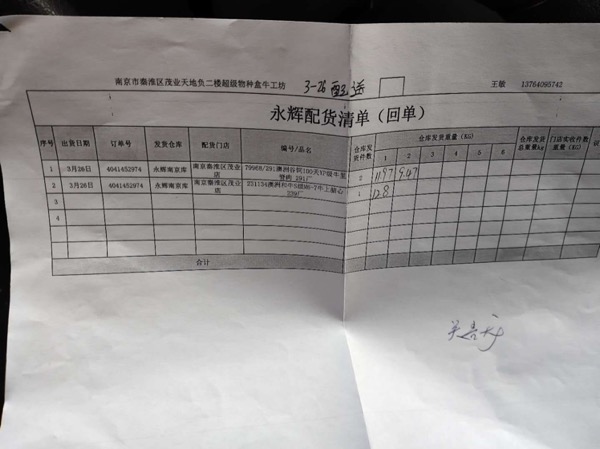 南京市秦淮区茂业天地负二楼超级物种盒牛工坊 3-26 配送 王敏 13764095742
永辉配货清单（回单）
序号 出货日期 订单号 发货仓库 配货门店 编号/品名 仓库发货件数 仓库发货重量（KG） 仓库发货总重量kg 门店实收件数重量（KG）
1 2 3 4 5 6
1 3月26日 4041452974 永辉南京库 南京秦淮区茂业店 79968/291澳洲谷饲100天 291厂 2 1197 947
2 3月26日 4041452974 永辉南京库 南京秦淮区茂业店 231134澳洲和牛 牛上脑心 239厂 1 128
3
4
合计